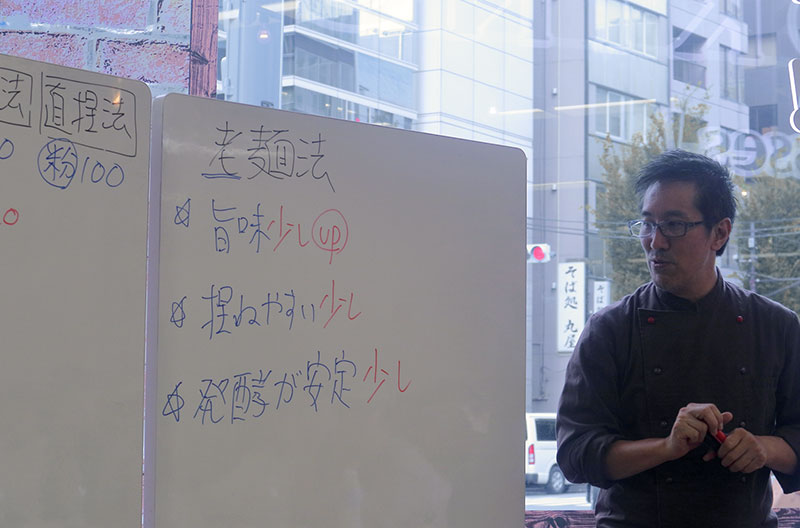 法
直捏法
粉100
老麺法
☆旨味少しup
☆捏ねやすい少し
☆発酵が安定少し
そば処 丸屋